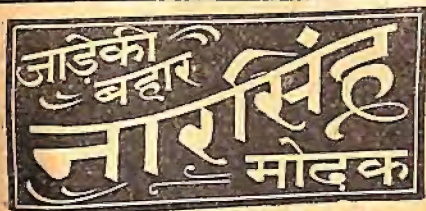 जाड़ेकी
बहार
नारसिंह
मोदक